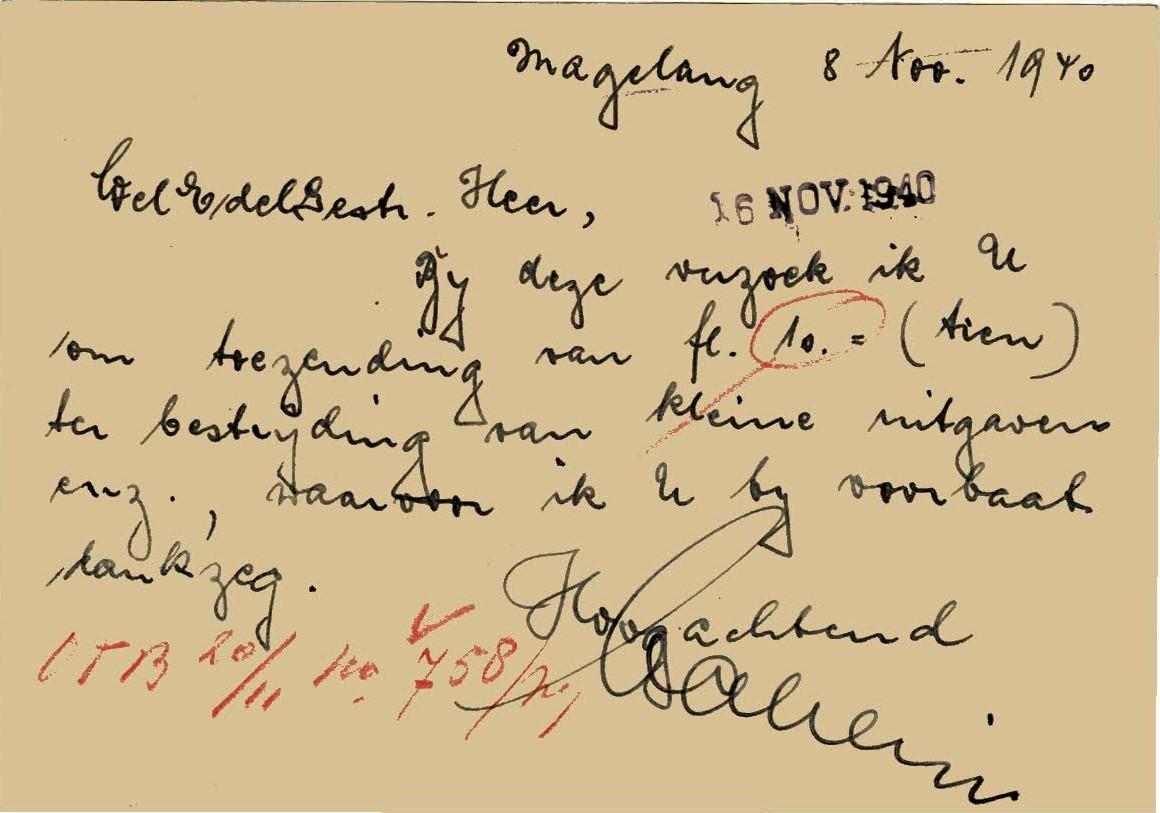 Magelang 8 Nov. 1940
WelEdelGestr. Heer,
16 NOV. 1940
By deze verzoek ik U
om toezending van fl. 10.= (tien)
ter bestryding van kleine uitgaven
enz., waarvoor ik U by voorbaat
dankzeg.
Hoogachtend
20/11 no. 758/